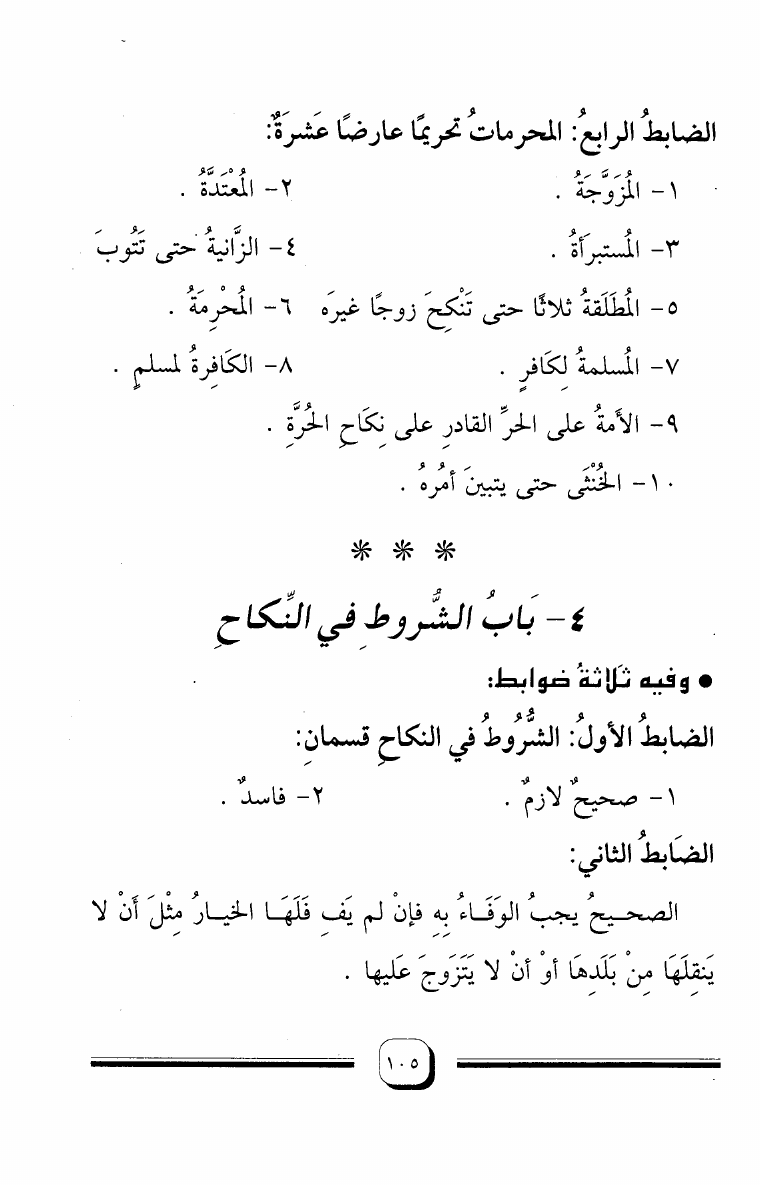 الضابطُ الرابعُ: المحرماتُ تحريمًا عارضًا عَشرَةٌ:
١- المُزَوَّجَةُ . ٢- المُعْتَدَّةُ .
٣- المُستبرأَةُ . ٤- الزَّانيةُ حتى تَتُوبَ
٥- المُطَلَقةُ ثلاثًا حتى تَنْكِحَ زوجًا غيرَه ٦- المُحْرِمَةُ .
٧- المُسلمةُ لِكَافرٍ . ٨- الكَافِرةُ لمسلمٍ .
٩- الأمةُ على الحرِّ القادرِ على نِكَاحِ الحُرَّةِ .
١٠- الخُنْثَى حتى يتبينَ أمُرهُ .
* * *
٤- بَابُ الشُّروطِ في النِّكاحِ
• وفيه ثَلاثةُ ضوابط:
الضابطُ الأولُ: الشُّرُوطُ في النكاحِ قسمانِ:
١- صحيحٌ لازمٌ . ٢- فاسدٌ .
الضَابطُ الثاني:
الصحيحُ يجبُ الوَفَاءُ بِهِ فإنْ لم يَفِ فَلَهَا الخيارُ مِثْلَ أَنْ لا
يَنقِلَهَا مِنْ بَلَدِهَا أوْ أنْ لا يَتَزَوجَ عَليها .
١٠٥